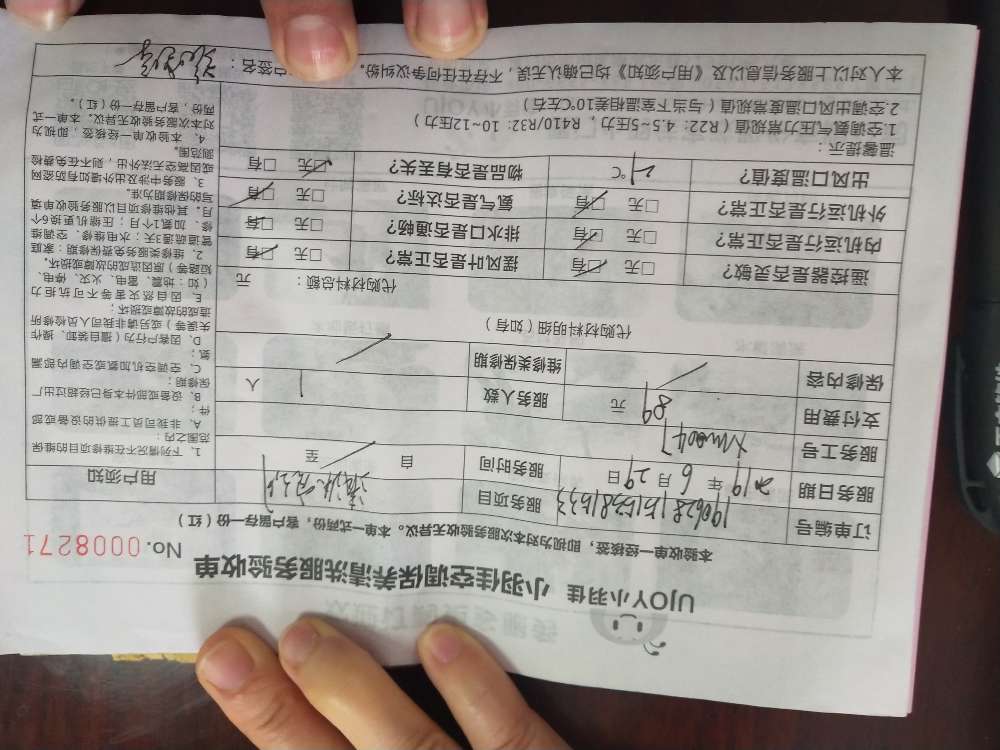 UJOY小羽佳 小羽佳空调保养清洗服务验收单 No. 0008271
本验收单一经核签，即视为对本次服务验收无异议。本单一式两份，客户留存一份（红）
订单编号 服务项目
服务日期 2019年 6月 29日 服务时间 自 至
服务工号 Xm0047
支付费用 89 元 服务人数 1 人
保修内容 维修类保修期
代购材料明细（如有）
代购材料总额： 元
遥控器是否灵敏？ □无 ☑有 摆风叶是否正常？ □无 ☑有
内机运行是否正常？ □无 ☑有 排水口是否通畅？ □无 ☑有
外机运行是否正常？ □无 ☑有 氨气是否达标？ □无 ☑有
出风口温度值？ ℃ 物品是否有丢失？ ☑无 □有
温馨提示：
1.空调氨气压力常规值（R22：4.5~5压力，R410/R32：10~12压力）
2.空调出风口温度常规值（与当下室温相差10℃左右）
本人对以上服务信息以及《用户须知》均已确认无误，不存在任何争议纠纷。 户签名：
用户须知
1、下列情况不在维修项目的维保
范围之内：
A、非我司员工提供的设备或部
件；
B、设备或部件本身已经超过出厂
保修期；
C、空调空机加氨或空调内部漏
氨；
D、因客户行为（擅自装卸、操作
失误等）或另请非我司人员检修所
造成的故障或损坏；
E、因自然灾害等不可抗拒力
（如：地震、雷电、火灾、停电、
短路等）原因造成的故障或损坏。
2、维修类服务免费保修期：家庭
管道疏通3天；水电维修、空调维
修、加氨1个月；压缩机更换6个
月。其他维修项目以服务验收单填
写的保修期为准。
3、服务中涉及出外墙如有防盗网
或因高空无法外出，则不在免费检
测范围。
4、本验收单一经核签，即视为
对本次服务验收无异议。本单一式
两份，客户留存一份（红）。